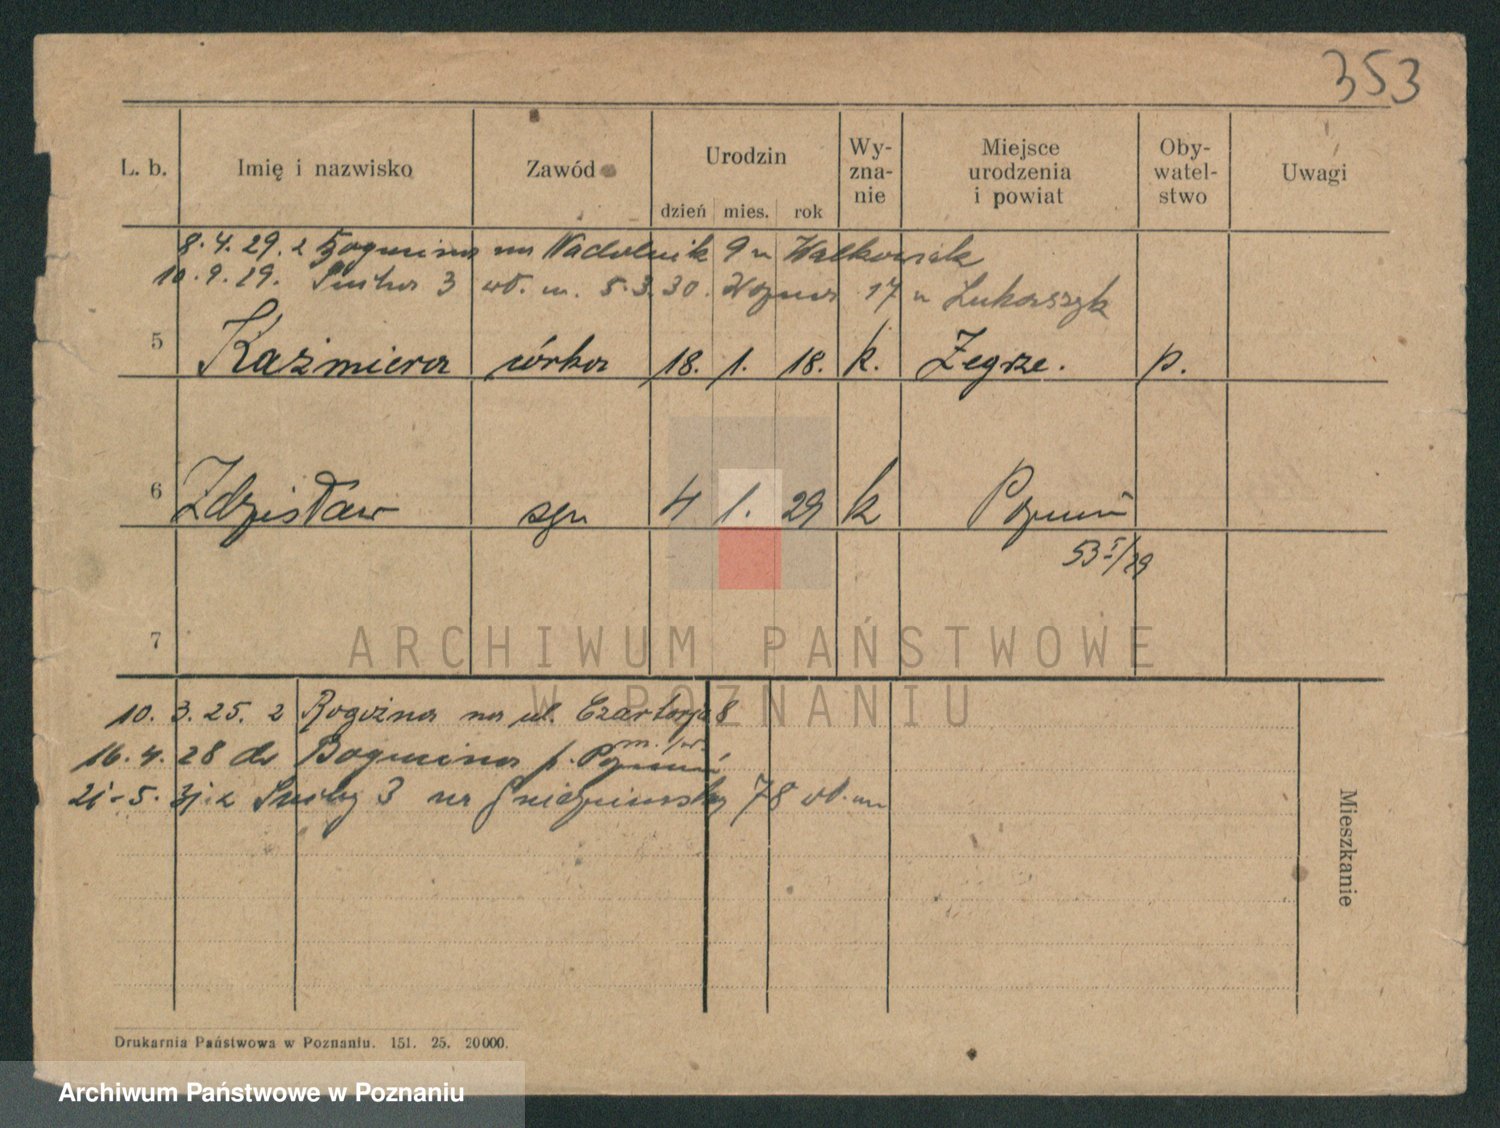 353
L. b. Imię i nazwisko Zawód Urodzin dzień mies. rok Wyznanie Miejsce urodzenia i powiat Obywatelstwo Uwagi
8. 4. 29. z Bogucina na Nadolnik 9 u Walkowiak
10. 9. 29. 3 wł. m. 5. 3. 30. 17 u Łukaszyk
5 Kaźmiera córka 18. 1. 18. k. Zegrze. p.
6 Zdzisław syn 4 1. 29 k Poznań
53 I/29
7
ARCHIWUM PAŃSTWOWE
W POZNANIU
10. 3. 25. z Rogoźna na ul. 8
16. 4. 28 do Bogucina p. Poznań
21. 5. 31. z 3 na 78 wł. m
Mieszkanie
Drukarnia Państwowa w Poznaniu. 151. 25. 20000.
Archiwum Państwowe w Poznaniu